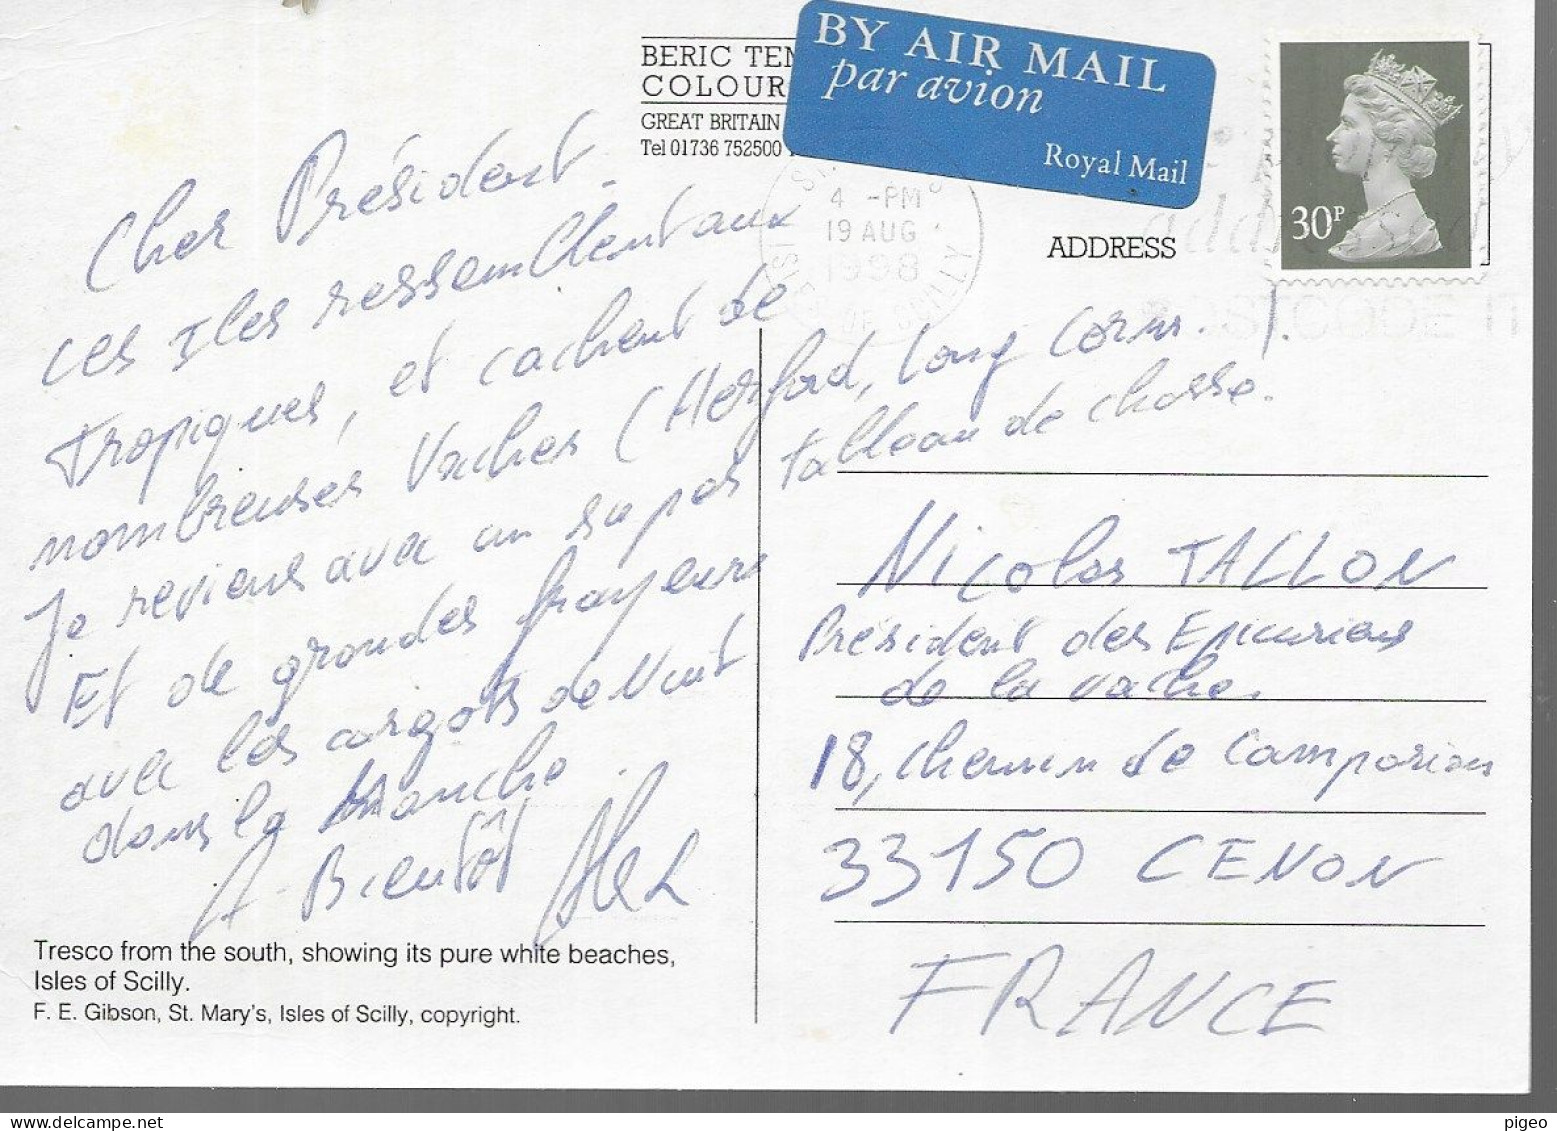 BERIC TEM
COLOUR
GREAT BRITAIN
Tel 01736 752500
BY AIR MAIL
par avion
Royal Mail
4 -PM
19 AUG
1998
OF SCILLY
30P
ADDRESS
POSTCODE IT
Cher Président.
Ces Iles ressemblent aux
Tropiques, et cachent de
nombreuses Vaches (Herford, Long Corns. ).
Je reviens avec un super tableau de chasse.
Et de grandes frayeurs
avec les cargots de Nuit
dans la Manche.
A-Bientôt Alex
Nicolas TALLON
Président des Epicuriens
de la vache.
18, chemin de Camparian
33150 CENON
FRANCE
Tresco from the south, showing its pure white beaches,
Isles of Scilly.
F. E. Gibson, St. Mary's, Isles of Scilly, copyright.
pigeo